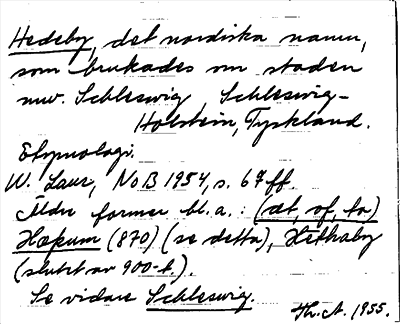 Hedeby, det nordiska namn,
som brukades om staden
nuv. Schleswig, Schleswig-
Holstein, Tyskland.
Etymologi.
W. Laur, NoB 1954, s. 67 ff.
Äldre former bl.a.: (æt, of, to)
Hæþum (870) (se detta), Hethaby
(slutet av 900-t.).
Se vidare Schleswig.
Th. A. 1955.